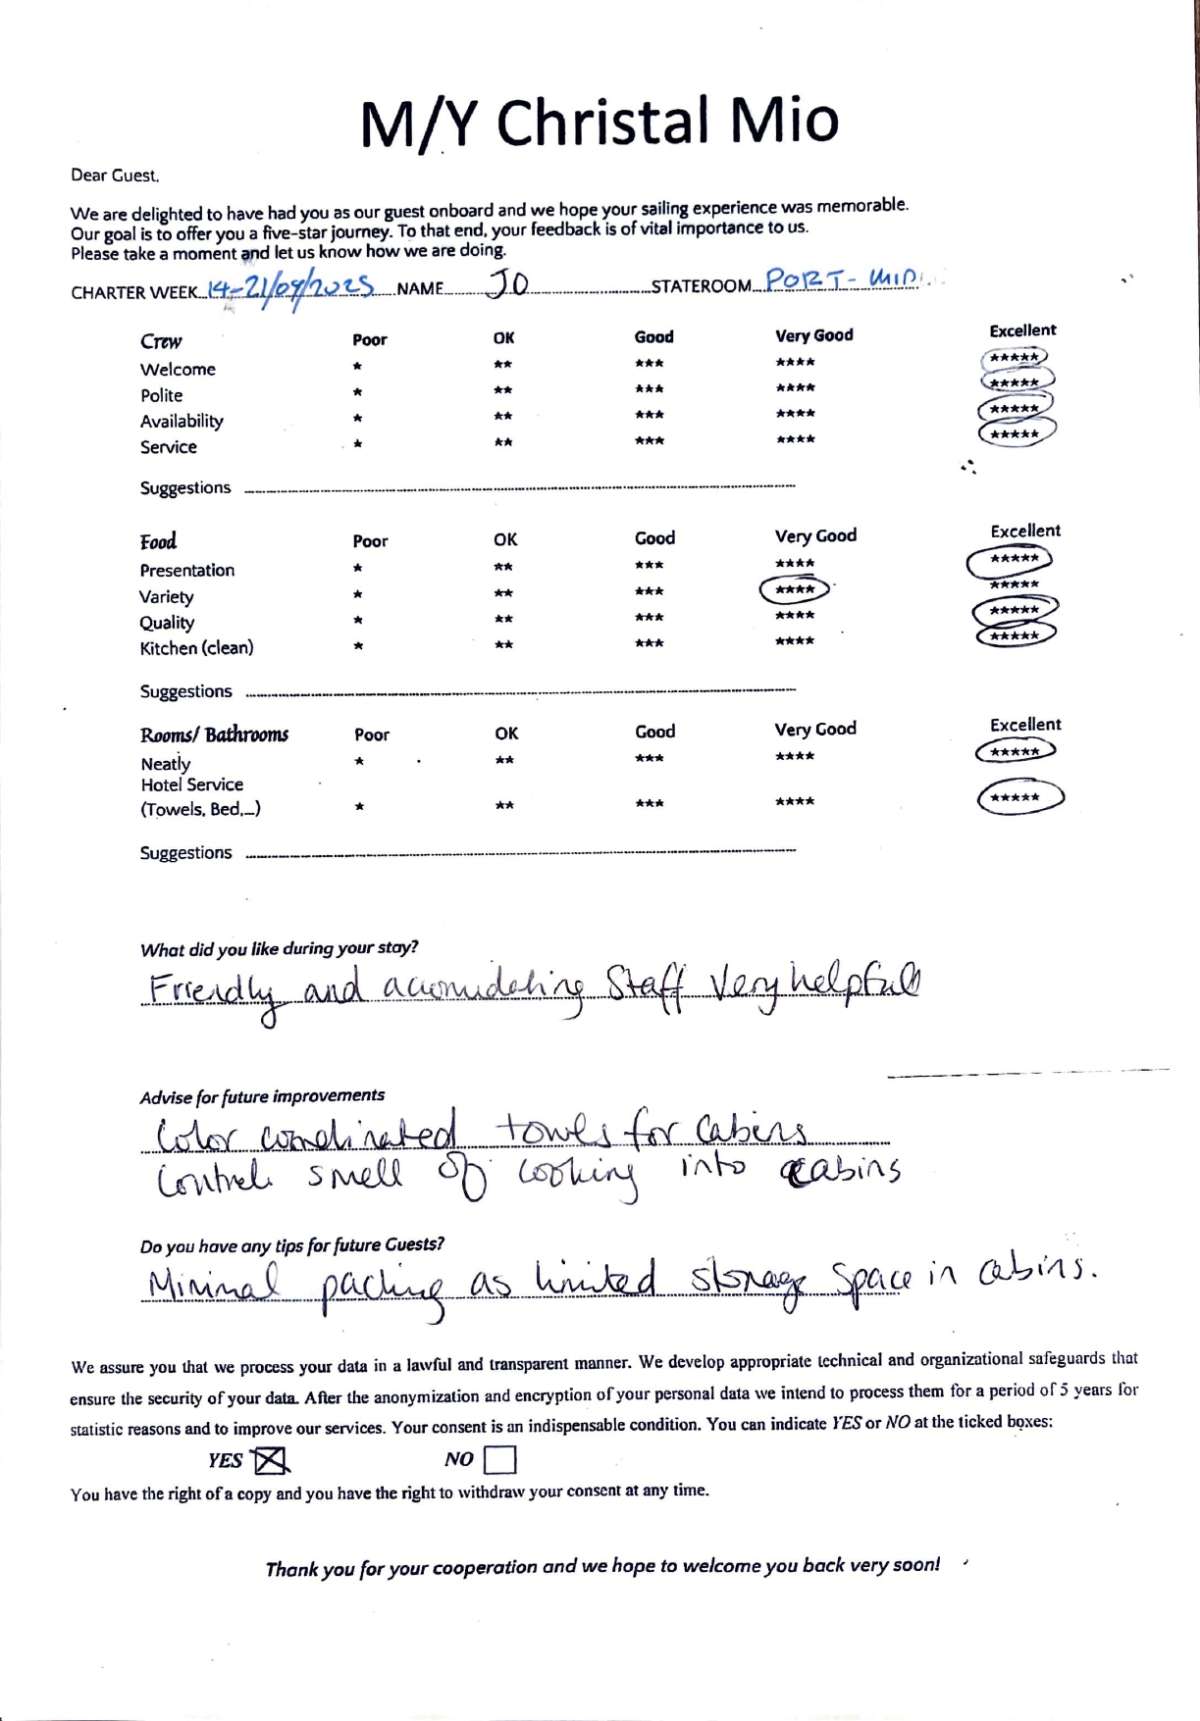 M/Y Christal Mio
Dear Guest,
We are delighted to have had you as our guest onboard and we hope your sailing experience was memorable.
Our goal is to offer you a five-star journey. To that end, your feedback is of vital importance to us.
Please take a moment and let us know how we are doing.
CHARTER WEEK 14-21/09/2025 NAME JO STATEROOM PORT-MID.
Crew Poor OK Good Very Good Excellent
Welcome * ** *** **** *****
Polite * ** *** **** *****
Availability * ** *** **** *****
Service * ** *** **** *****
Suggestions
Food Poor OK Good Very Good Excellent
Presentation * ** *** **** *****
Variety * ** *** **** *****
Quality * ** *** **** *****
Kitchen (clean) * ** *** **** *****
Suggestions
Rooms/ Bathrooms Poor OK Good Very Good Excellent
Neatly * ** *** **** *****
Hotel Service
(Towels, Bed,...) * ** *** **** *****
Suggestions
What did you like during your stay?
Friendly and accomidating Staff Very helpfull
Advise for future improvements
Color coordinated towels for cabins
Control smell of cooking into cabins
Do you have any tips for future Guests?
Minimal packing as limited storage space in cabins.
We assure you that we process your data in a lawful and transparent manner. We develop appropriate technical and organizational safeguards that
ensure the security of your data. After the anonymization and encryption of your personal data we intend to process them for a period of 5 years for
statistic reasons and to improve our services. Your consent is an indispensable condition. You can indicate YES or NO at the ticked boxes:
YES NO
You have the right of a copy and you have the right to withdraw your consent at any time.
Thank you for your cooperation and we hope to welcome you back very soon!